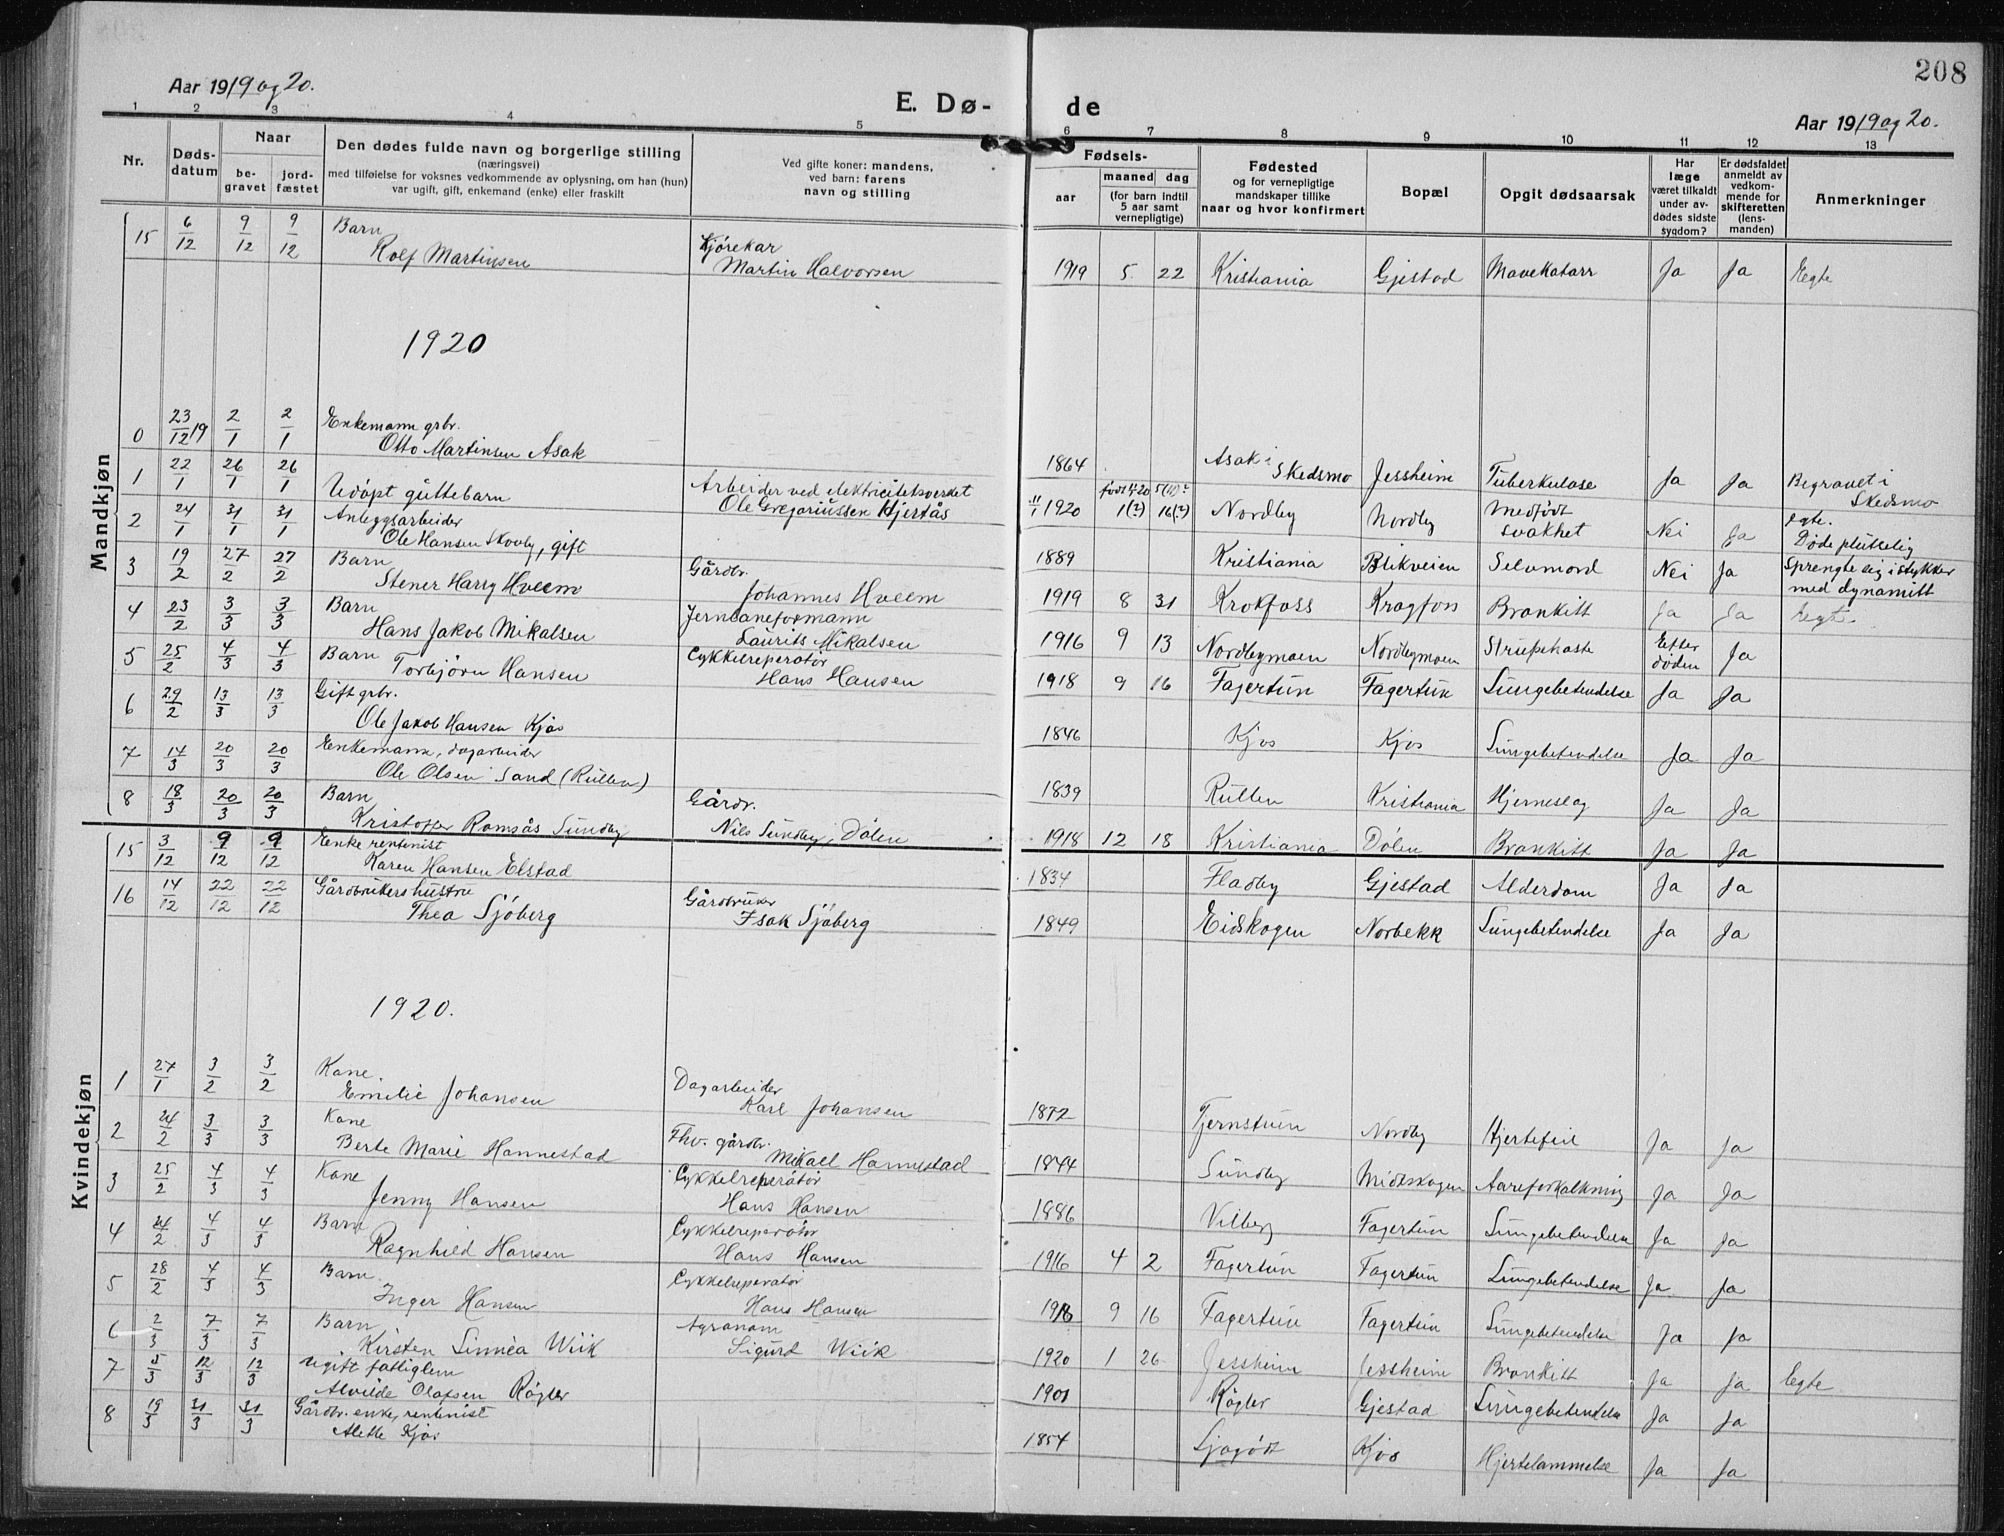 208
Aar 1919 og 20.
E. Dø- de
Aar 1919 og 20.
1 2 3 4 5 6 7 8 9 10 11 12 13
Nr.
Døds-
datum
Naar
be-
gravet
jord-
fæstet
Den dødes fulde navn og borgerlige stilling
(næringsvei)
med tilføielse for voksnes vedkommende av oplysning, om han (hun)
var ugift, gift, enkemand (enke) eller fraskilt
Ved gifte koner: mandens,
ved barn: farens
navn og stilling
Fødsels-
aar
maaned dag
(for barn indtil
5 aar samt
vernepligtige)
Fødested
og for vernepligtige
mandskaper tillike
naar og hvor konfirmert
Bopæl
Opgit dødsaarsak
Har
læge
været tilkaldt
under av-
dødes sidste
sygdom?
Er dødsfaldet
anmeldt av
vedkom-
mende for
skifteretten
(lens-
manden)
Anmerkninger
Mandkjøn
15 6/12 9/12 9/12 Barn Rolf Martinsen Kjørekar Martin Halvorsen 1919 5 22 Kristiania Gjestad Mavekatarr Ja Ja Egte
1920
0 23/12 19 2/1 2/1 Enkemann grbr. Otto Martinsen Asak 1864 Asak i Skedsmo Jessheim Tuberkulose Ja Ja Begravet i Skedsmo
1 22/1 26/1 26/1 Udøpt guttebarn Arbeider ved elektricitetsverket Ole Gregariussen Hjertås 1920 1(?) 16(?) Nordby Nordby Medfødt svakhet Nei Ja egte. Døde plutselig
2 24/1 31/1 31/1 Anleggsarbeider Ole Hansen Skovby, gift 1889 Kristiania Blikveien Selvmord Nei Ja Sprengte sig i stykker med dynamitt
3 19/2 27/2 27/2 Barn Stener Harry Hveem Gårdbr. Johannes Hveem 1919 8 31 Krokfoss Kragfoss Bronkitt Ja Ja Egte.
4 23/2 3/3 3/3 Barn Hans Jakob Mikalsen Jernbaneformann Laurits Mikalsen 1916 9 13 Nordbymoen Nordbymoen Strupehoste Etter døden Ja
5 25/2 4/3 4/3 Barn Torbjørn Hansen Cykkelreperatør Hans Hansen 1918 9 16 Fagertun Fagertun Lungebetendelse Ja Ja
6 29/2 13/3 13/3 Gift grbr. Ole Jakob Hansen Kjos 1846 Kjos Kjos Lungebetendelse Ja Ja
7 14/3 20/3 20/3 Enkemann, dagarbeider Ole Olsen Sand (Rullen) 1839 Rullen Kristiania Hjerneslag Ja Ja
8 18/3 20/3 20/3 Barn Kristoffer Ramsås Sundby Gårdbr. Nils Sundby, Dølen 1918 12 18 Kristiania Dølen Bronkitt Ja Ja
Kvindekjøn
15 3/12 9/12 9/12 Enke rentenist Karen Hansen Elstad 1834 Fladby Gjestad Alderdom Ja Ja
16 14/12 22/12 22/12 Gårdbrukers hustru Thea Sjøberg Gårdbruker Isak Sjøberg 1849 Eidskogen Norbekk Lungebetendelse Ja Ja
1920.
1 27/1 3/2 3/2 Kone Emilie Johansen Dagarbeider Karl Johansen 1872 Tjernstuen Nordby Hjertefeil Ja Ja
2 24/2 3/3 3/3 Kone Berte Marie Hannestad Fhv. gårdbr. Mikael Hannestad 1844 Sundby Midtskogen Aareforkalkning Ja Ja
3 25/2 4/3 4/3 Kone Jenny Hansen Cykkelreperatør Hans Hansen 1886 Vilberg Fagertun Lungebetendelse Ja Ja
4 24/2 4/3 4/3 Barn Ragnhild Hansen Cykkelreperatør Hans Hansen 1916 4 2 Fagertun Fagertun Lungebetendelse Ja Ja
5 28/2 4/3 4/3 Barn Inger Hansen Cykkelreperatør Hans Hansen 1918 9 16 Fagertun Fagertun Lungebetendelse Ja Ja
6 2/3 7/3 7/3 Barn Kirsten Linnéa Wiik Agronom Sigurd Wiik 1920 1 26 Jessheim Jessheim Bronkitt Ja Ja Egte
7 5/3 12/3 12/3 Ugift fattiglem Alvilde Olafsen Røgler 1901 Røgler Gjestad Lungebetendelse Ja Ja
8 19/3 31/3 31/3 Gårdbr. enke, rentenist Alette Kjos 1854 Kjos Hjertelammelse Ja Ja